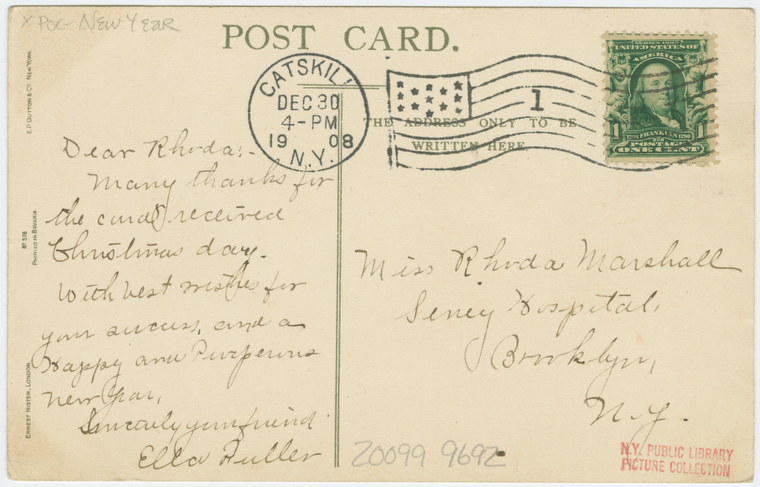 x POC- NEW YEAR
POST CARD.
CATSKILL
DEC 30
4-PM
1908
N.Y.
1
THE ADDRESS ONLY TO BE
WRITTEN HERE.
SERIES 1902
UNITED STATES OF
AMERICA
FRANKLIN
1 1
POSTAGE
ONE CENT
E.P. DUTTON & CO. NEW YORK
PRINTED IN BAVARIA
ERNEST NISTER, LONDON
Dear Rhoda:-
Many thanks for
the card received
Christmas day.
With best wishes for
your success, and a
Happy and Prosperous
New Year,
Sincerely your friend
Ella Fuller
Miss Rhoda Marshall
Seney Hospital,
Brooklyn,
N.Y.
20099 9692
N.Y. PUBLIC LIBRARY
PICTURE COLLECTION